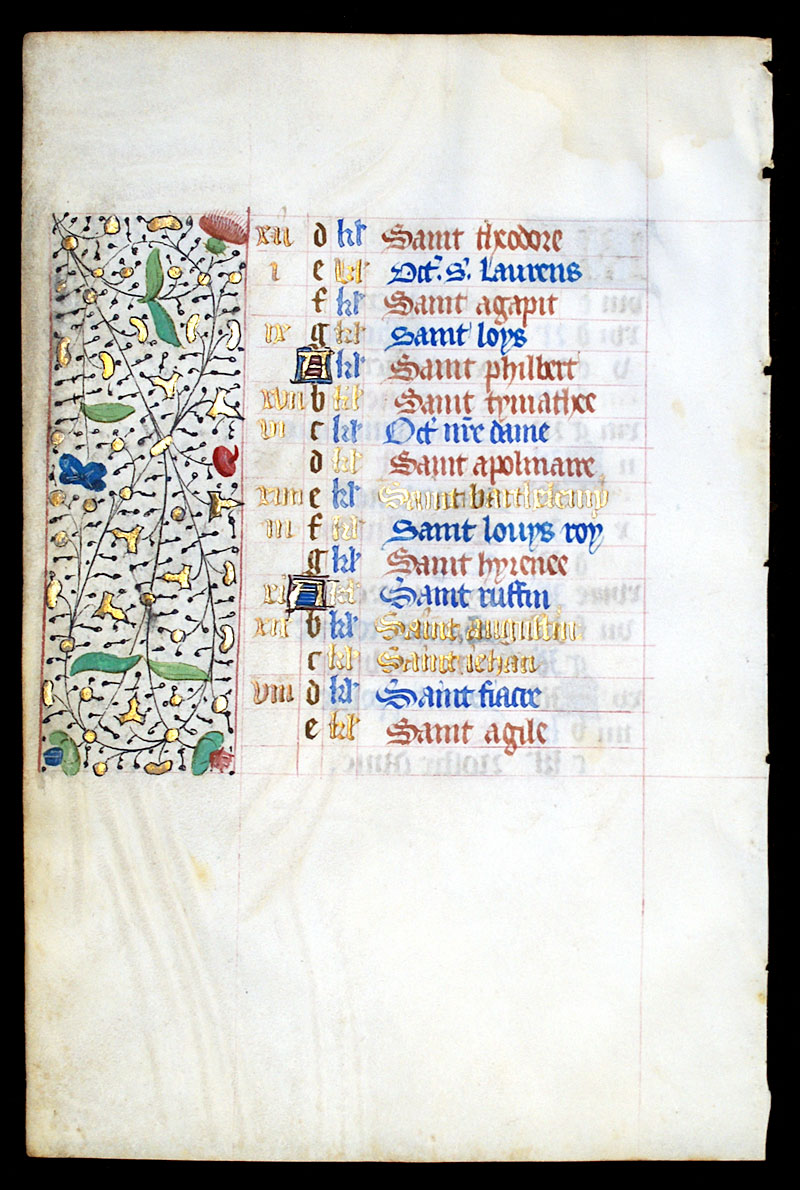 xii d kl' Saint theodore
i e kl' Oct'. S'. Laurens
f kl' Saint agapit
ix g kl' Saint loys
A kl' Saint philbert
xvii b kl' Saint tymathee
vi c kl' Oct' nr̄e dame
d kl' Saint apolinaire
xiiii e kl' Saint barthelemy
iii f kl' Saint louys roy
g kl' Saint hyrenee
xi A kl' Saint ruffin
xix b kl' Saint augustin
c kl' Saint iehan
viii d kl' Saint fiacre
e kl' Saint agile